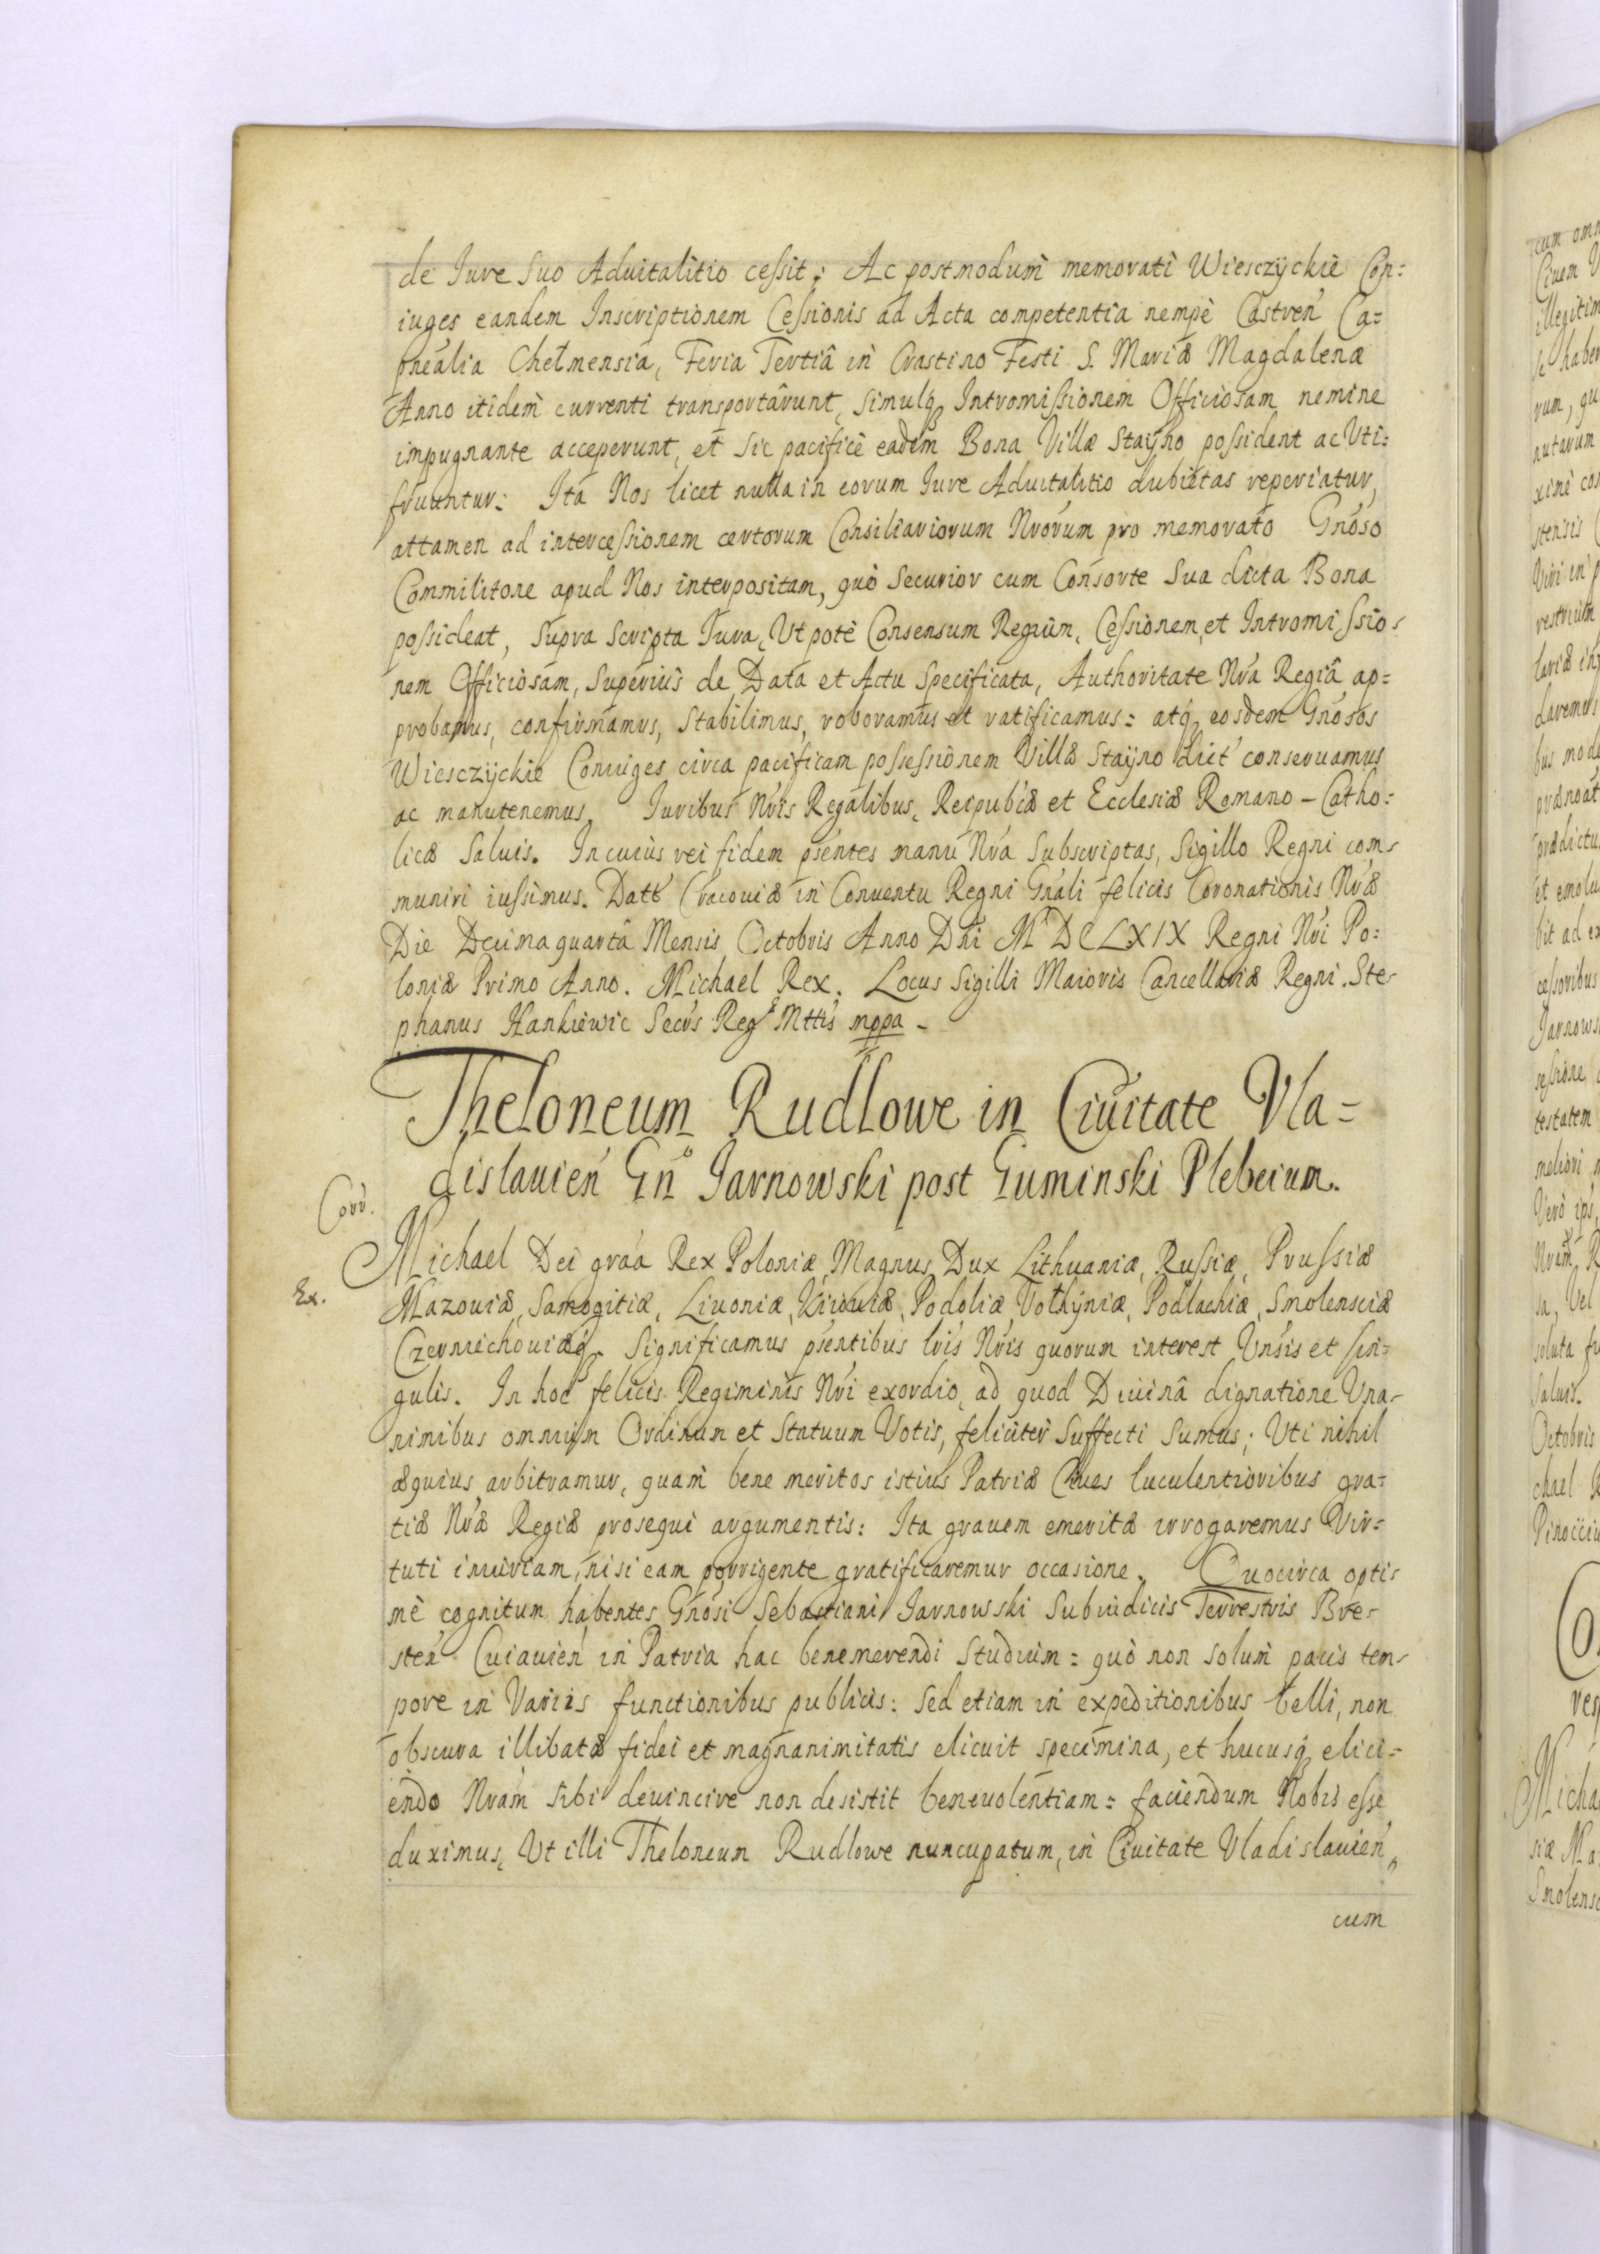 de Iure Suo Aduitalitio cessit; Ac postmodum memorati Wiesczyckie Con=
iuges eandem Inscriptionem Cessionis ad Acta competentia nempè Castren Ca=
pnealia Chelmensia, Feria Tertiâ in Crastino Festi S. Mariæ Magdalenæ
Anno itidem currenti transportârunt, simulq, Intromissionem Officiosam nemine
impugnante acceperunt, et sic pacificè eadem Bona Villæ Stayno possident ac Uti=
fruuntur: Ita Nos licet nulla in eorum Iure Aduitalitio dubietas reperiatur,
attamen ad intercessionem certorum Consiliariorum Nrorum pro memorato Gnoso
Commilitone apud Nos interpositam, quò Securior cum Consorte Sua dicta Bona
possideat, Supra Scripta Iura, Ut potè Consensum Regium, Cessionem, et Intromissio=
nem Officiosam, Superiùs de Data et Actu Specificata, Authoritate Nra Regiâ ap=
probamus, confirmamus, Stabilimus, roboramus et ratificamus: atq, eosdem Gnosos
Wiesczyckie Coniuges circa pacificam possessionem Villæ Stayno dict conseruamus
ac manutenemus. Iuribus Nris Regalibus, Reipublæ et Ecclesiæ Romano-Catho=
licæ Saluis. In cuius rei fidem pñtes manu Nra Subscriptas, Sigillo Regni com=
muniri iussimus. Datt Cracouiæ in Conuentu Regni Gnali felicis Coronationis Nræ
Die Decimaquartâ Mensis Octobris Anno Dni MDCLXIX Regni Nri Po=
loniæ Primo Anno. Michael Rex. Locus Sigilli Maioris Cancellariæ Regni. Ste=
phanus Hankiewic Secrs Reg Mttis mppa
Theloneum Rudlowe in Ciuitate Vla=
dislauien Gn° Jarnowski post Guminski Plebeium.
Corr.
Michael Dei gra̅a Rex Poloniæ, Magnus Dux Lithuaniæ, Russiæ, Prussiæ
Ex.
Mazouiæ, Samogitiæ, Liuoniæ, Kiiouiæ, Podoliæ, Volhyniæ, Podlachiæ, Smolensciæ
Czerniechouiæq. Significamus pñtibus lris Nris quorum interest Unsis et sin=
gulis. In hoc felicis Regiminis Nri exordio, ad quod Diuinâ dignatione Una=
nimibus omnium Ordinum et Statuum Votis, feliciter Suffecti Sumus; Uti nihil
æquius arbitramur, quam bene meritos istius Patriæ Ciues luculentioribus gra=
tiæ Nræ Regiæ prosequi argumentis: Ita grauem emeritæ irrogaremus Vir=
tuti iniuriam, nisi eam porrigente gratificaremur occasione. Quocirca opti=
mè cognitum habentes Gnosi Sebastiani Jarnowski Subiudicis Terrestris Bre=
sten Cuiauien in Patria hac benemerendi Studium: quò non solum pacis tem=
pore in Variis functionibus publicis: Sed etiam in expeditionibus belli, non
obscura illibatæ fidei et magnanimitatis elicuit specimina, et hucusq, elici=
endo Nram sibi deuincire non desistit beneuolentiam: faciendum Nobis esse
duximus, Ut illi Theloneum Rudlowe nuncupatum, in Ciuitate Vladislauien,
cum